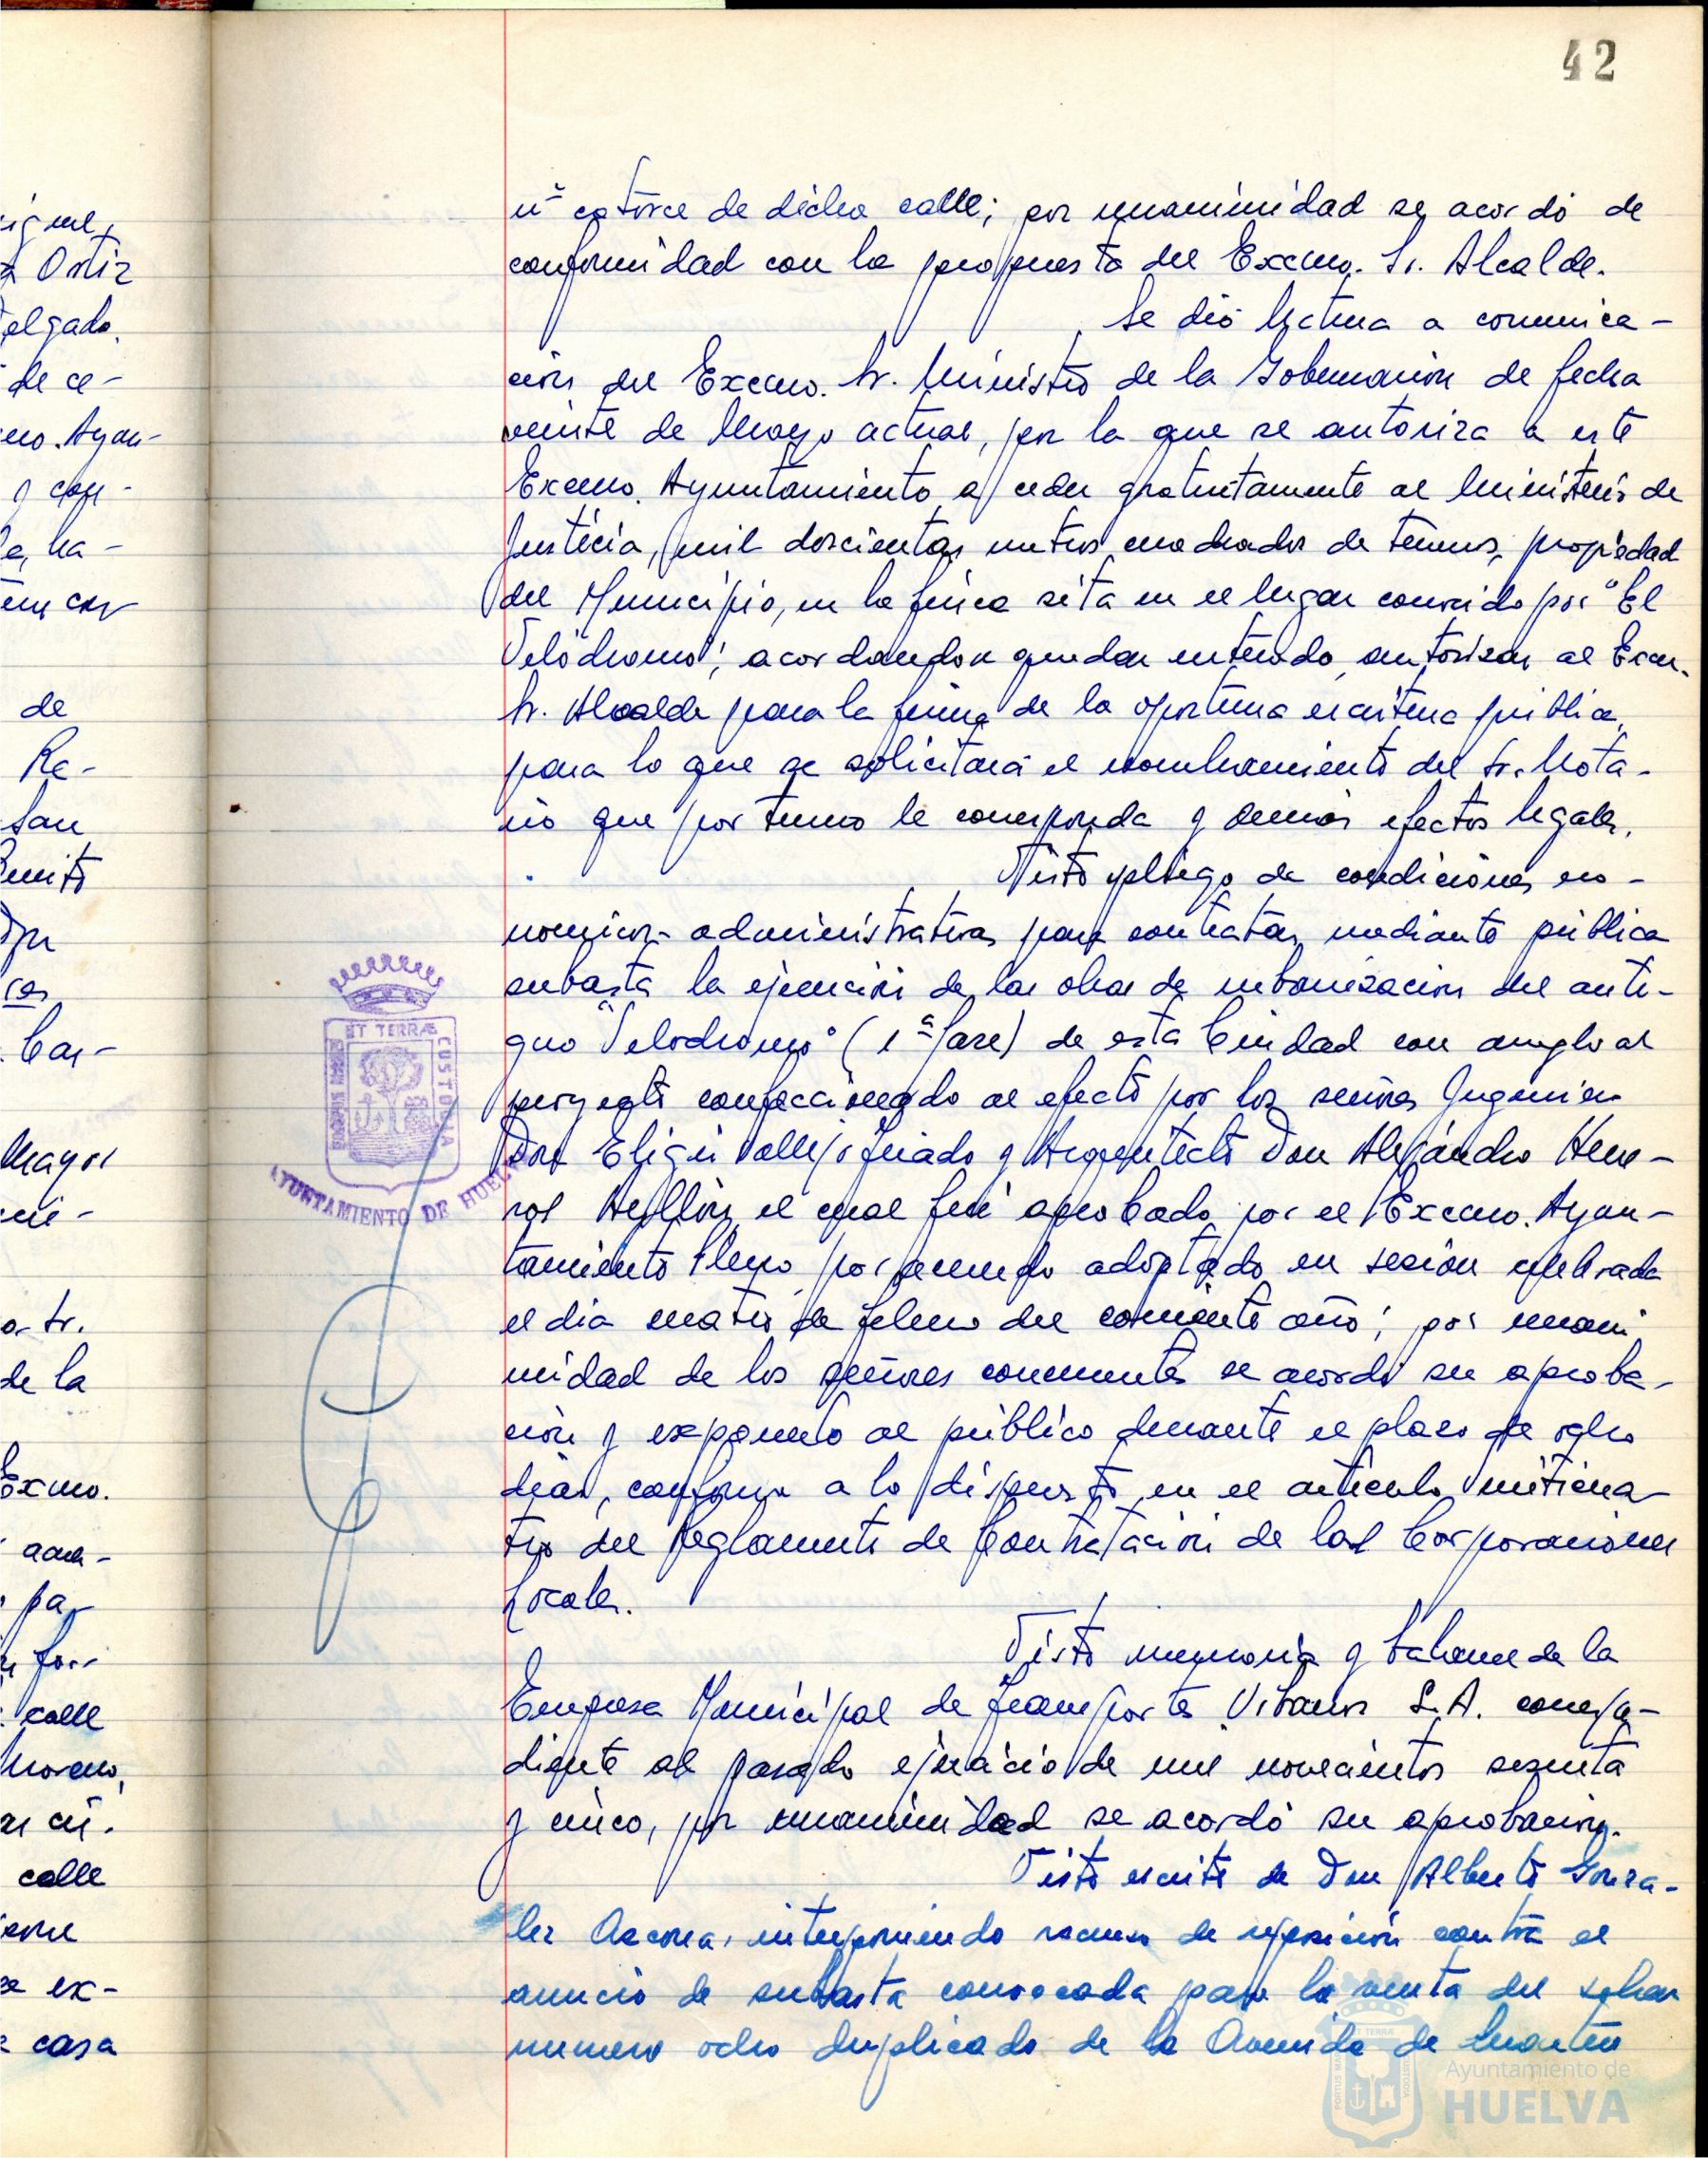 42
nº catorce de dicha calle; por unanimidad se acordó de
conformidad con la propuesta del Excmo. Sr. Alcalde.
Se dió lectura a comunica-
ción del Excmo. Sr. Ministro de la Gobernación de fecha
veinte de Mayo actual, por la que se autoriza a este
Excmo. Ayuntamiento a ceder gratuitamente al Ministerio de
Justicia, mil doscientos metros cuadrados de terrenos, propiedad
del Municipio, en la finca sita en el lugar conocido por "El
Velódromo"; acordandose quedar enterado, autorizar al Excm.
Sr. Alcalde para la firma de la oportuna escritura pública,
para lo que se solicitará el nombramiento del Sr. Nota-
rio que por turno le corresponda y demás efectos legales.
Visto pliego de condiciones eco-
nomico-administrativas para contratar, mediante pública
subasta la ejecución de las obras de urbanización del anti-
guo "Velodromo" (1ª fase) de esta Ciudad con arreglo al
proyecto confeccionado al efecto por los señores Ingeniero
Don Eligio Vallejo y Arquitecto Don Alejandro Herre-
ros Ayllón, el cual fué aprobado por el Excmo. Ayun-
tamiento Pleno, por acuerdo adoptado en sesion celebrada
el dia cuatro de febrero del corriente año; por unani
midad de los señores concurrentes se acordó su aproba-
ción y exponerlo al público durante el plazo de ocho
dias, conforme a lo dispuesto en el articulo veinticua
tro del Reglamento de Contratación de las Corporaciones
Locales.
Visto memoria y balance de la
Empresa Municipal de Transportes Urbanos S.A. correspon-
diente al pasado ejercicio de mil novecientos sesenta
y cinco, por unanimidad se acordó su aprobación.
Visto escrito de Don Alberto Gonza-
lez Azcona, interponiendo recurso de reposición contra el
anuncio de subasta convocada para la venta del solar
numero ocho duplicado de la Avenida de Martin
ET TERRÆ
CUSTODIA
AYUNTAMIENTO DE HUELVA
Ayuntamiento de
HUELVA
igue,
Ortiz
elgado.
de ce-
mo. Ayun-
y con-
ha-
de
Re-
San
Car-
Mayor
Sr.
de la
Excmo.
pa-
for-
calle
Moreno,
calle
ex-
casa